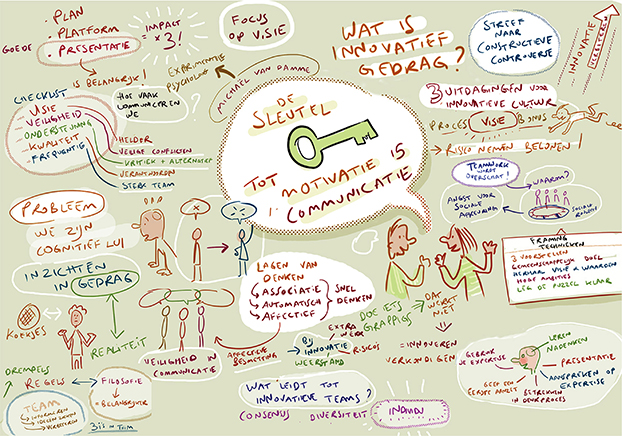 • PLAN
• PLATFORM
GOEDE • PRESENTATIE
IMPACT
× 3!
↳ IS BELANGRIJK!
FOCUS
OP VISIE
EXPERIMENTELE
PSYCHOLOOG
MICHAEL VAN DAMME
CHECKLIST
VISIE
VEILIGHEID
ONDERSTEUNING
KWALITEIT
FREQUENTIE
HOE VAAK
COMMUNICEREN
WE
HELDER
VEILIGE CONFLICTEN
KRITIEK + ALTERNATIEF
VERANTWOORDEN
STERK TEAM
DE
SLEUTEL
TOT MOTIVATIE IS
COMMUNICATIE
WAT IS
INNOVATIEF
GEDRAG?
STREEF
NAAR
CONSTRUCTIEVE
CONTROVERSE
INNOVATIE
VERSTEREN
3 UITDAGINGEN VOOR
INNOVATIEVE CULTUUR
PROCES VISIE BONUS
→ RISICO NEMEN BELONEN
TEAMWORK
WORDT
OVERSCHAT!
WAAROM?
ANGST VOOR
SOCIALE
AFREKENING
SOCIALE
FRAMING
TECHNIEKEN
3 VOORSTELLEN
GEMEENSCHAPPELIJK DOEL
HERHAAL VISIE & WAAROM
HOGE AMBITIES
LEG DE PUZZEL KLAAR
PROBLEEM
WE ZIJN
COGNITIEF LUI
INZICHTEN
IN GEDRAG
KOEKJES
REALITEIT
DREMPELS
REGELS
FILOSOFIE
= BELANGRIJKER
TEAM
INFORMEREN
VERBETEREN
3 IS EEN TEAM
VEILIGHEID IN
COMMUNICATIE
LAGEN VAN
DENKEN
↳ ASSOCIATIE
↳ AUTOMATISCH
↳ AFFECTIEF
SNEL
DENKEN
AFFECTIEVE
BESMETTING
BIJ
INNOVATIE
EXTRA
WERK
RISICO'S
WEERSTAND
DOE IETS
GRAPPIGS
DAT
WERKT
NIET
= INNOVEREN
VERKONDIGEN
WAT LEIDT TOT
INNOVATIEVE TEAMS?
CONSENSUS DIVERSITEIT
INDIVIDU
LATEN
NADENKEN
GEBRUIK
JE EXPERTISE
PRESENTATIE
AANSPREKEN OP
EXPERTISE
GEEF EEN
EERSTE AANZET
BETREKKEN
IN DENKPROCES